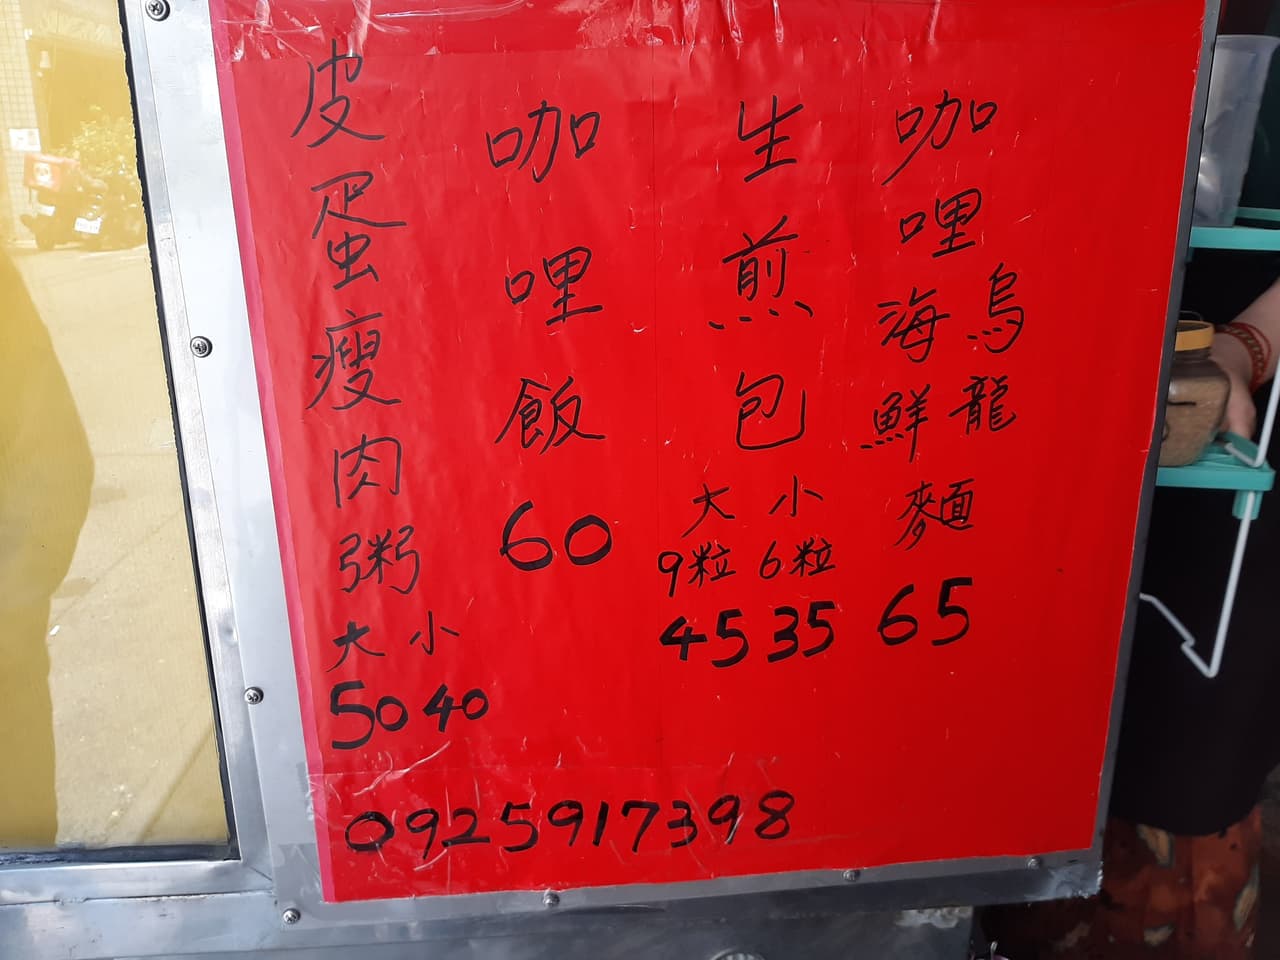 咖哩海鮮烏龍麵
65
生煎包
大 小
9粒 6粒
45 35
咖哩飯
60
皮蛋瘦肉粥
大 小
50 40
0925917398